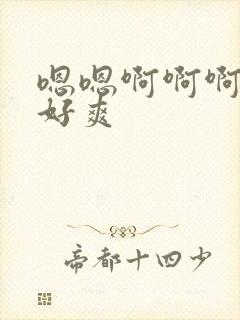 嗯嗯啊啊啊
好爽
帝都十四少